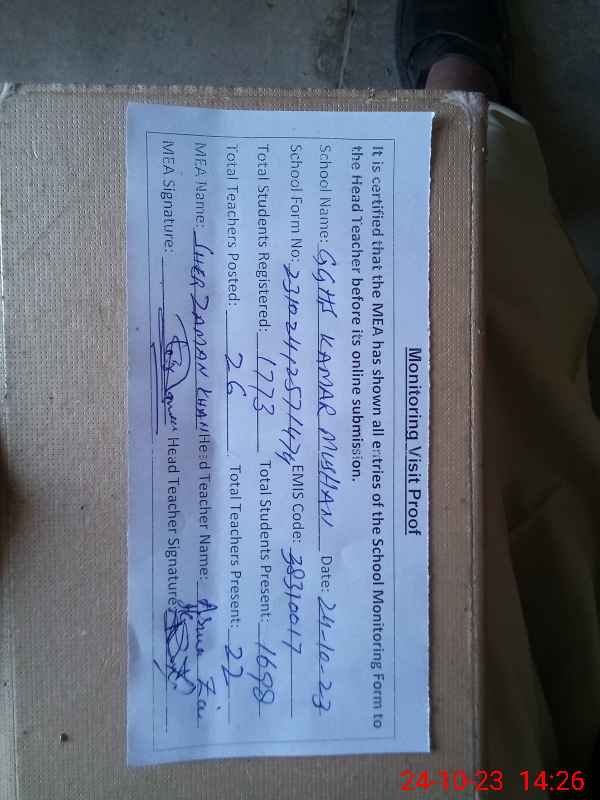 Monitoring Visit Proof
It is certified that the MEA has shown all entries of the School Monitoring Form to
the Head Teacher before its online submission.
School Name: GGHS KAMAR MUSHANI Date: 24-10-23
School Form No: EMIS Code: 38310017
Total Students Registered: 1773 Total Students Present: 1698
Total Teachers Posted: 26 Total Teachers Present: 22
MEA Name: SHER ZAMAN KHAN Head Teacher Name: Asma
MEA Signature: Head Teacher Signature:
24-10-23 14:26